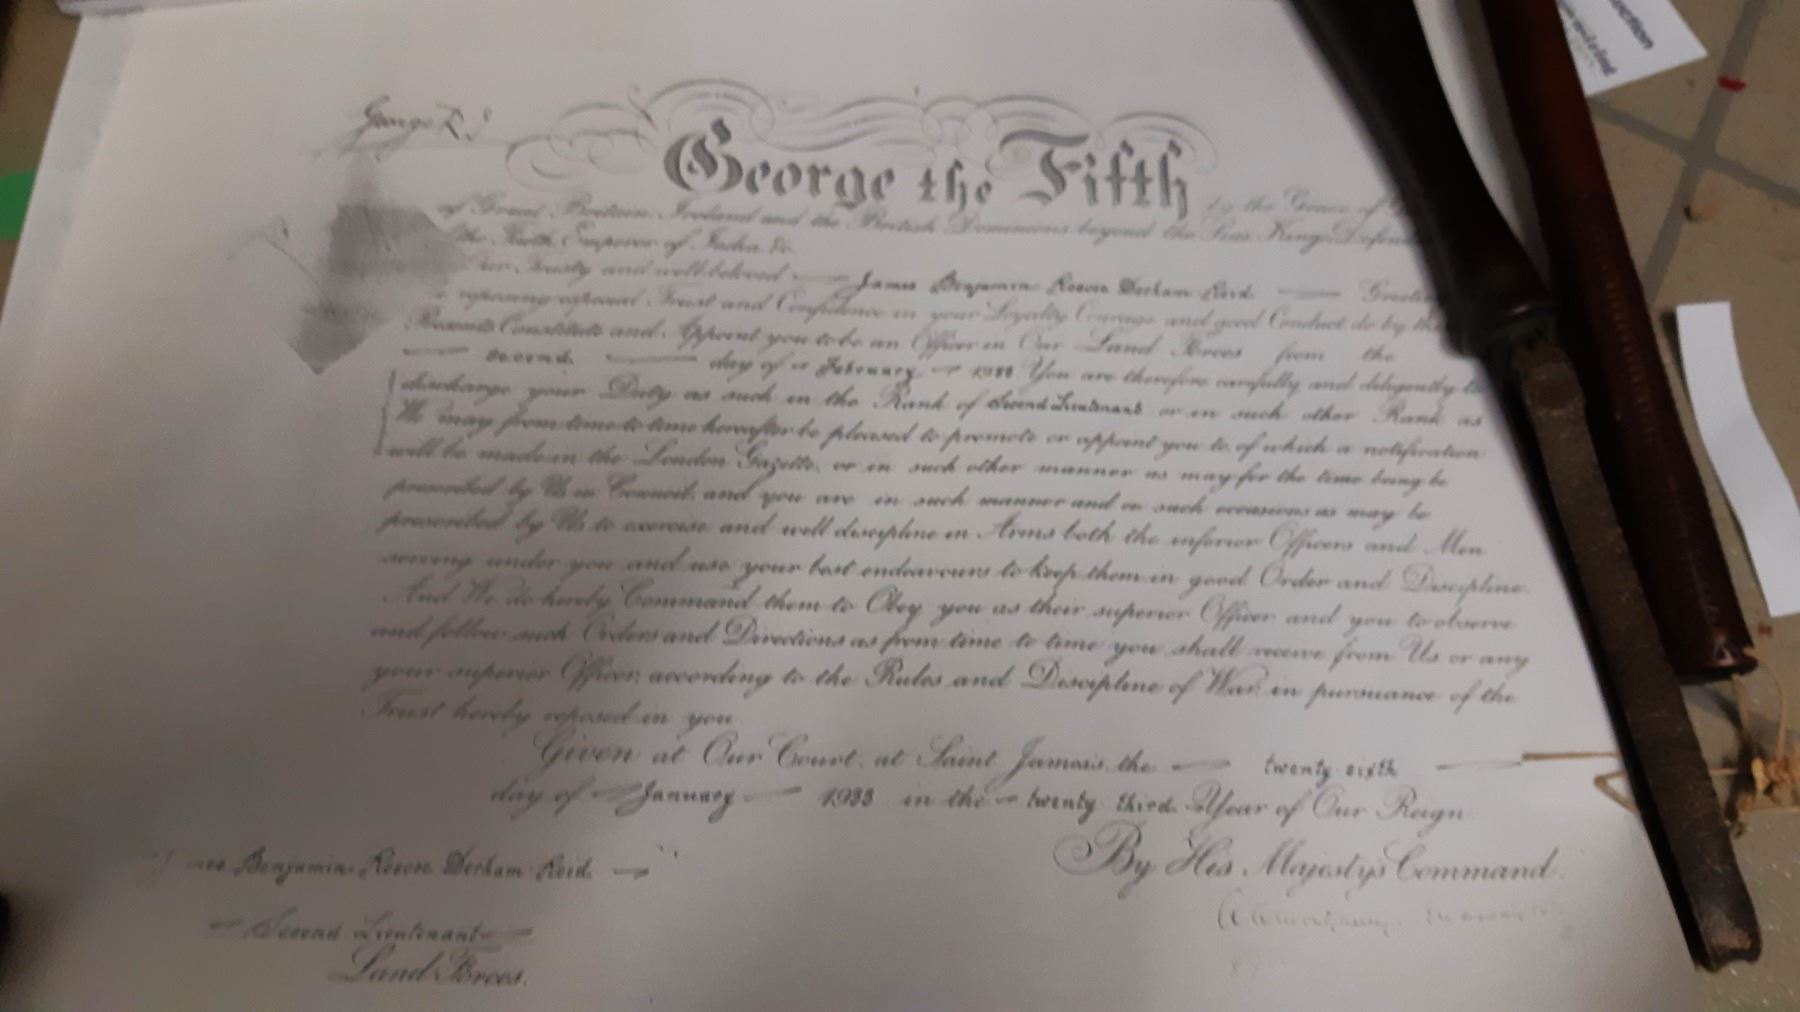 George R.I.
George the Fifth by the Grace of
of Great Britain, Ireland and the British Dominions beyond the Seas, King, Defender
of the Faith, Emperor of India, &c.
our Trusty and well beloved James Benjamin Roscoe Derham Reid Greeting
reposing especial Trust and Confidence in your Loyalty Courage and good Conduct do by these
Presents Constitute and Appoint you to be an Officer in Our Land Forces from the
second day of February 1933 You are therefore carefully and diligently to
discharge your Duty as such in the Rank of Second Lieutenant or in such other Rank as
We may from time to time hereafter be pleased to promote or appoint you to, of which a notification
will be made in the London Gazette, or in such other manner as may for the time being be
prescribed by Us in Council, and you are in such manner and on such occasions as may be
prescribed by Us to exercise and well discipline in Arms both the inferior Officers and Men
serving under you and use your best endeavours to keep them in good Order and Discipline.
And We do hereby Command them to Obey you as their superior Officer and you to observe
and follow such Orders and Directions as from time to time you shall receive from Us or any
your superior Officer, according to the Rules and Discipline of War, in pursuance of the
Trust hereby reposed in you
Given at Our Court, at Saint James's, the twenty sixth
day of January 1933 in the twenty third Year of Our Reign
By His Majesty's Command.
Benjamin Roscoe Derham Reid
Second Lieutenant
Land Forces.